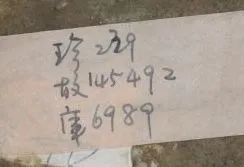 珍239
故145492
庫6989